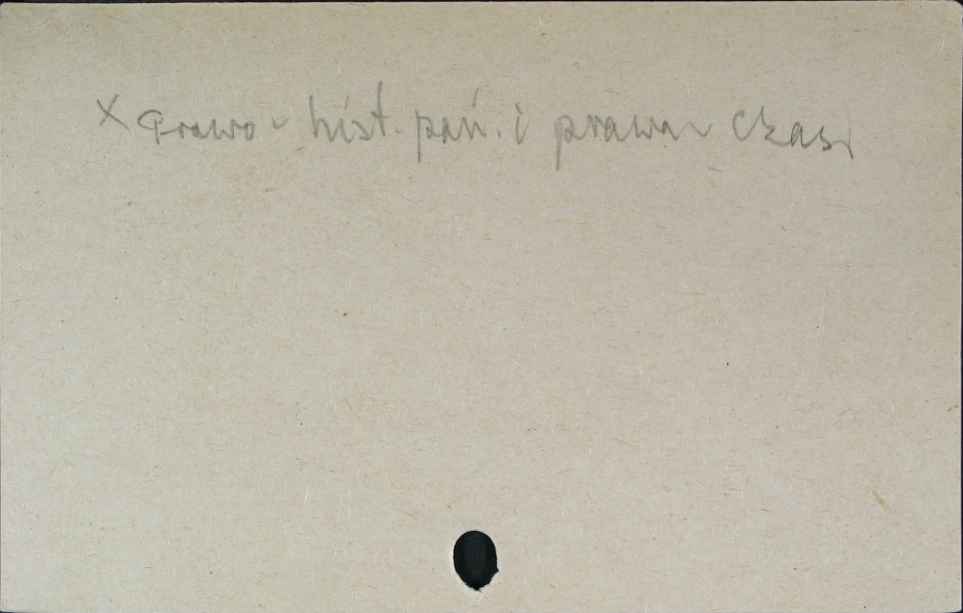 x Prawo - hist. pań. i prawa - czas.